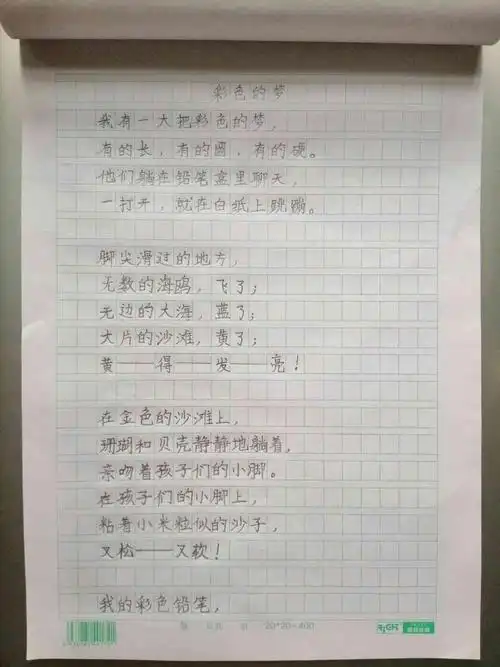 彩色的梦
我有一大把彩色的梦,
有的长,有的圆,有的硬。
他们躺在铅笔盒里聊天,
一打开,就在白纸上跳蹦。
脚尖滑过的地方,
无数的海鸥,飞了;
无边的大海,蓝了;
大片的沙滩,黄了;
黄——得——发——亮!
在金色的沙滩上,
珊瑚和贝壳静静地躺着,
亲吻着孩子们的小脚。
在孩子们的小脚上,
粘着小米粒似的沙子,
又松——又软!
我的彩色铅笔,
20*20=400